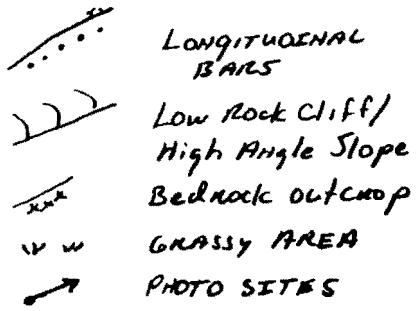 LONGITUDINAL
BARS
Low Rock Cliff/
High Angle Slope
Bedrock outcrop
GRASSY AREA
PHOTO SITES